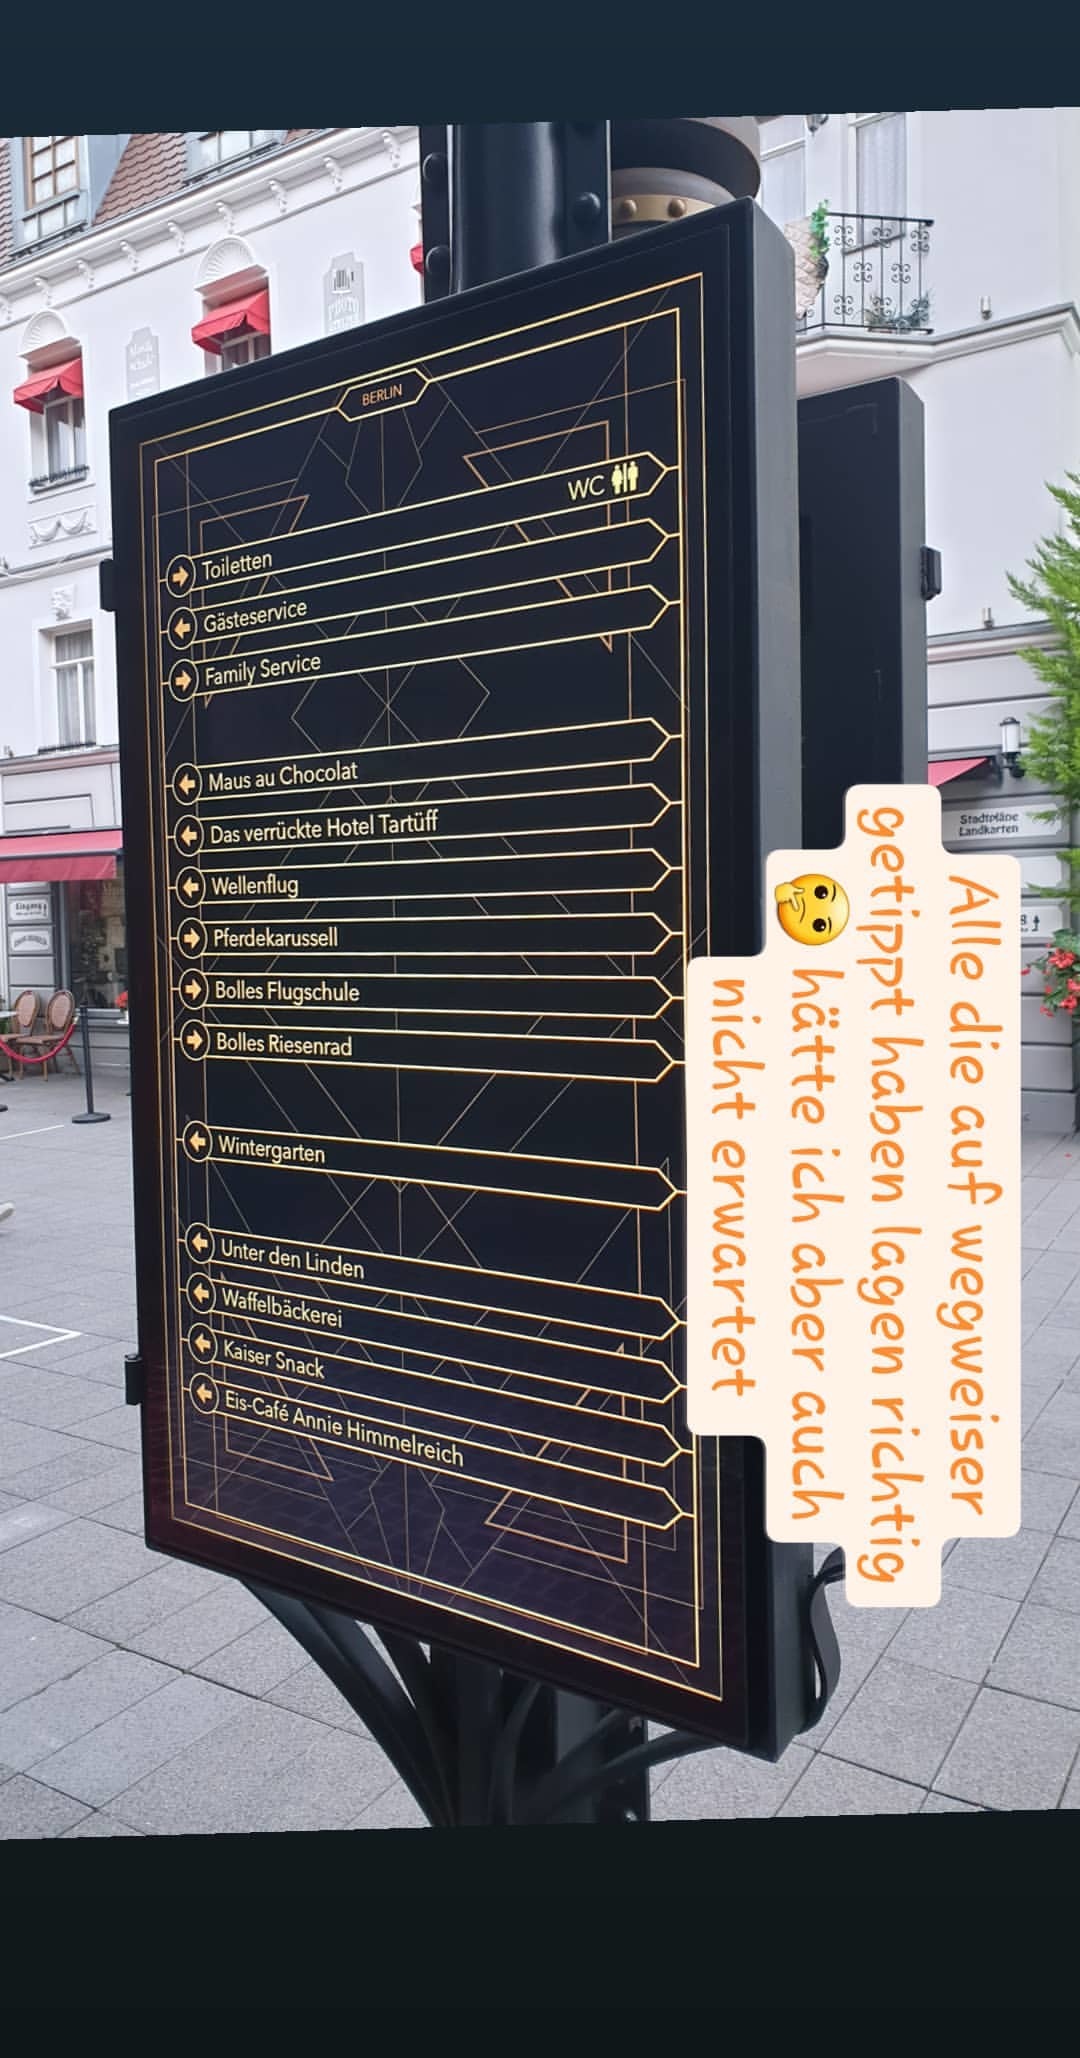 BERLIN
WC
Toiletten
Gästeservice
Family Service
Maus au Chocolat
Das verrückte Hotel Tartüff
Wellenflug
Pferdekarussell
Bolles Flugschule
Bolles Riesenrad
Wintergarten
Unter den Linden
Waffelbäckerei
Kaiser Snack
Eis-Café Annie Himmelreich
Alle die auf wegweiser
getippt haben lagen richtig
🤔 hätte ich aber auch
nicht erwartet
Stadtpläne
Landkarten
Eingang